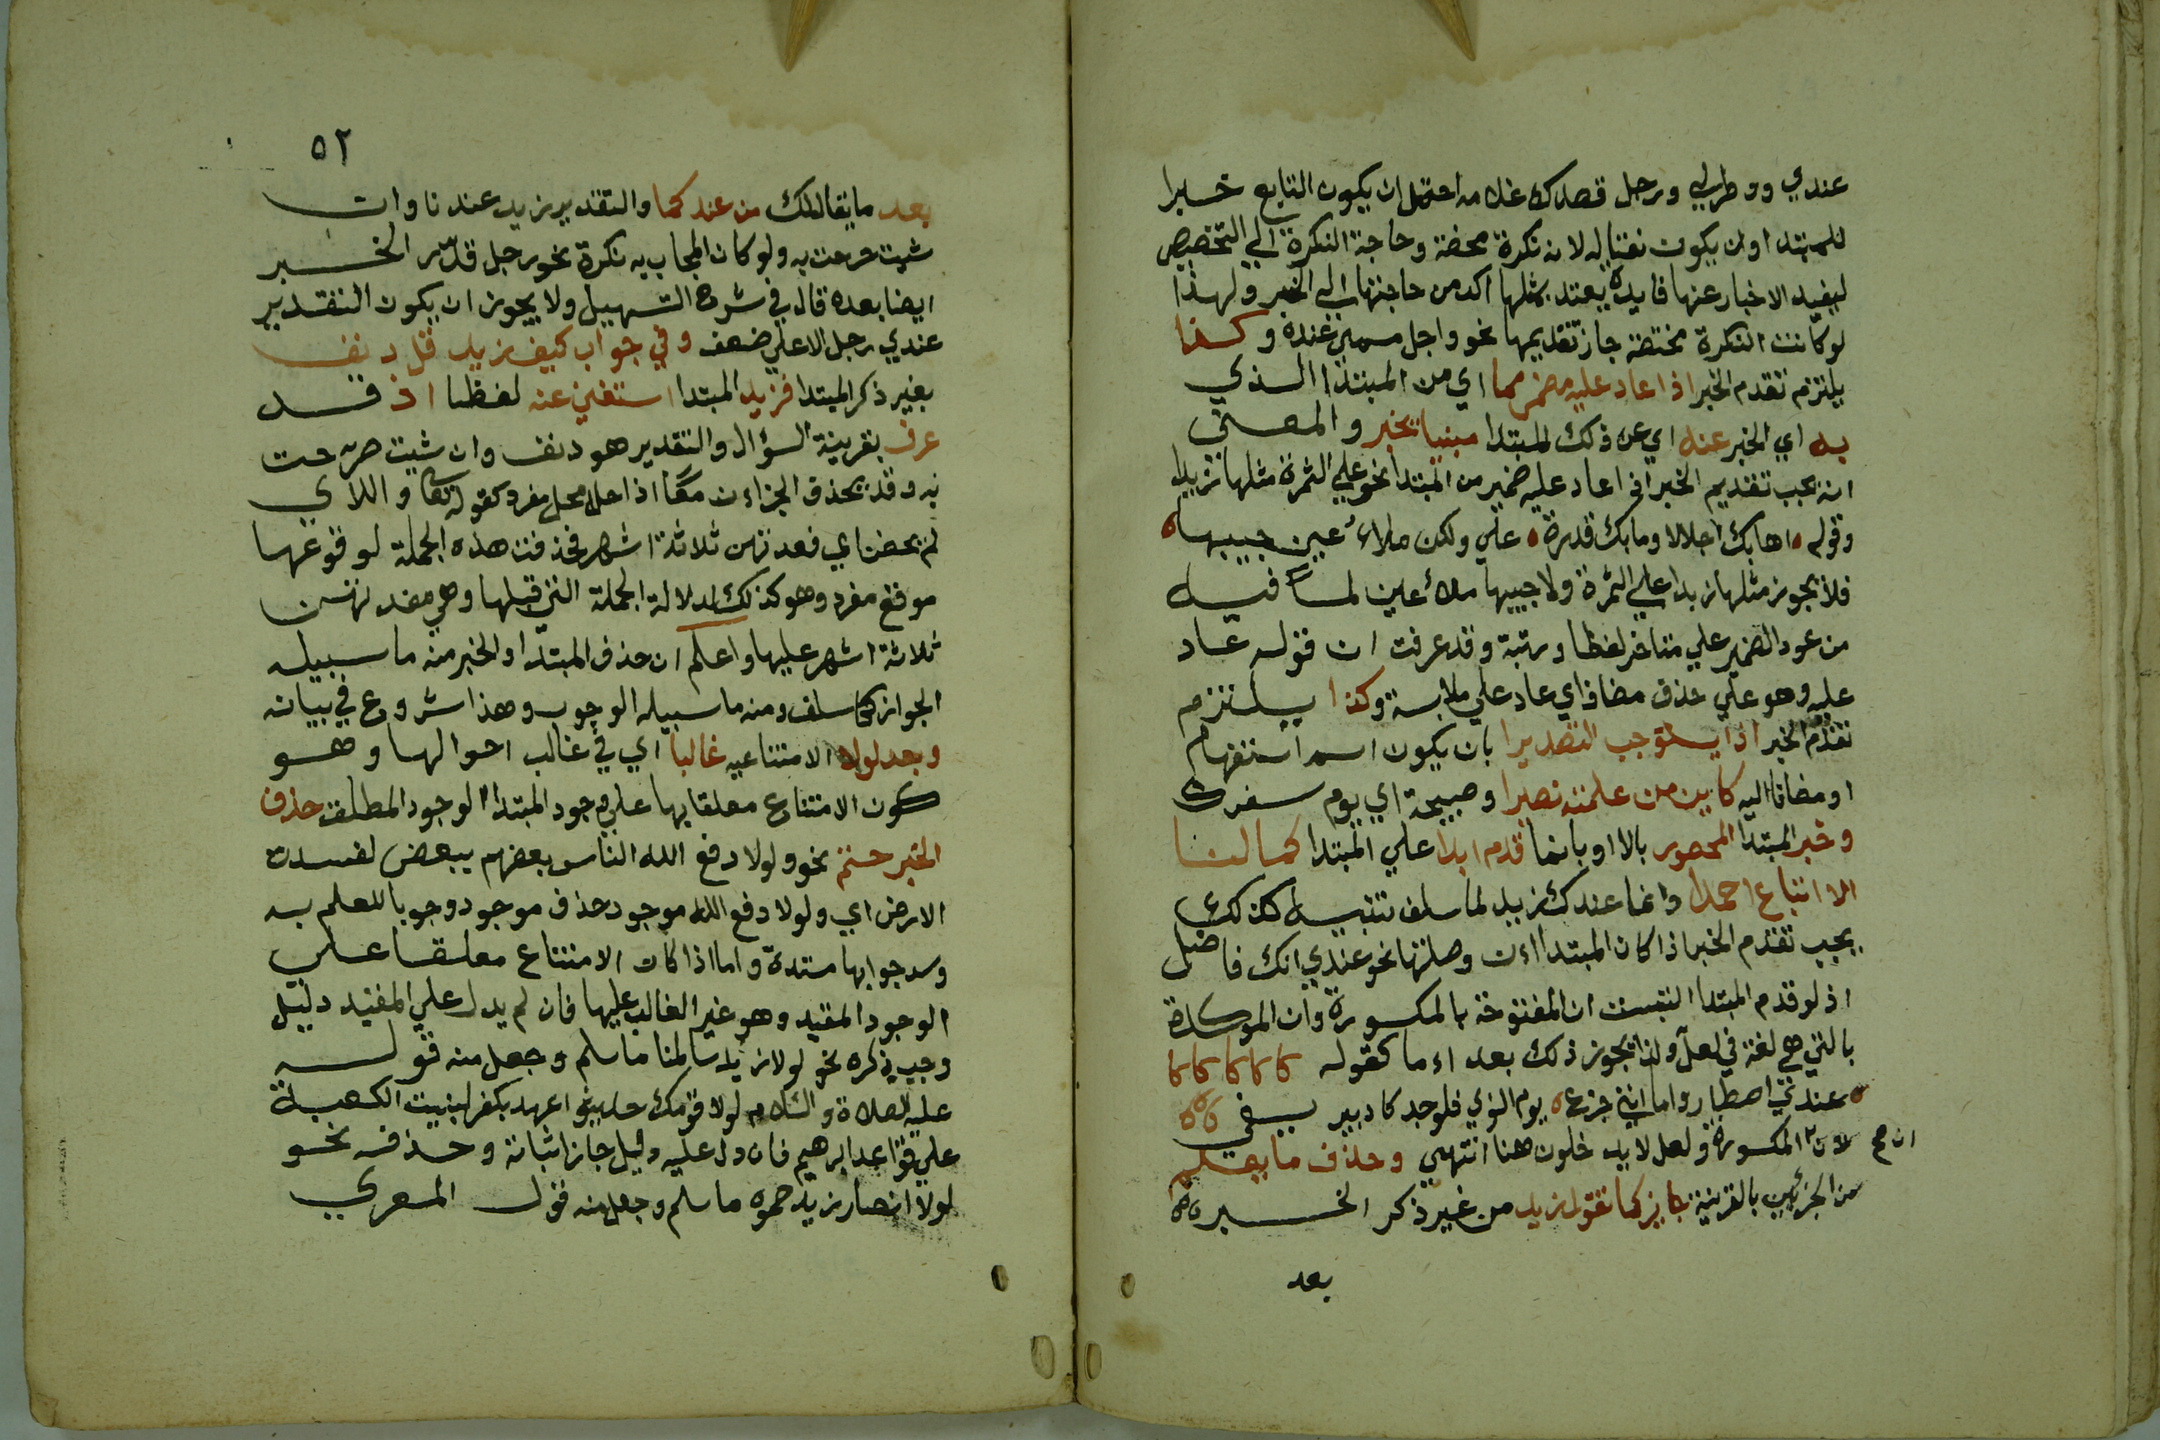 عندي ووطر لي ورجل قصدك غلامه احتمل ان يكون التابع خبرا
للمبتدا وان يكون نعتا له لانه نكرة محضة وحاجة النكرة الي التخصيص
ليفيد الاخبار عنها فايدة يعتد بمثلها اكد من حاجتها الي الخبر ولهذا
لو كانت النكرة مختصة جاز تقديمها نحو واجل مسمي عنده وكذا
يلتزم تقدم الخبر اذا عاد عليه مضمر مما اي من المبتدا الذي
به اي الخبر عنه اي عن ذلك المبتدا مبنيا يخبر والمعني
انه يجب تقديم الخبر اذا عاد عليه ضمير من المبتدا نحو علي الثمرة مثلها زبدا
وقوله اهابك اجلالا وما بك قدرة علي ولكن ملاء عين حبيبها
فلا يجوز مثلها زبدا علي الثمرة ولا حبيبها ملاء عين لما فيه
من عود الضمير علي متاخر لفظا ورتبة وقد عرفت ان قوله عاد
عليه وهو علي حذف مضاف اي عاد علي ملابسه وكذا يلتزم
تقدم الخبر اذا يستوجب التصديرا بان يكون اسم استفهام
او مضافا اليه كاين من علمته نصيرا وصبيحة اي يوم سفرك
وخبر المبتدا المحصور بالا او بانما قدم ابدا علي المبتدا كما لنا
الا اتباع احمدا وانما عندك زيد لما سلف تنبيه كذلك
يجب تقدم الخبر اذا كان المبتدا ان وصلتها نحو عندي انك فاضل
اذ لو قدم المبتدا التبست ان المفتوحة بالمكسورة وان الموكدة
بالتي هي لغة في لعل ولذا يجوز ذلك بعد اما كقوله
عندي اصطبار واما انني جزع يوم النوي فلوجد كاد يبريني
لان ان المكسورة ولعل لا يدخلون هنا انتهي وحذف ما يعلم
من الجزئين بالقرينة جايز كما تقول زيد من غير ذكر الخبر
بعد
٥٢
بعد ما يقال لك من عندكما والتقدير زيد عندنا وان
شيت صرحت به ولو كان المجاب به نكرة نحو رجل قدر الخبر
ايضا بعده قال في شرح التسهيل ولا يجوز ان يكون التقدير
عندي رجل الا علي ضعف وفي جواب كيف زيد قل دنف
بغير ذكر المبتدا فزيد المبتدا استغني عنه لفظا اذ قد
عرف بقرينة السؤال والتقدير هو دنف وان شيت صرحت
به وقد يحذف الجزاءن معًا اذا حل محل مفرد كقوله تعا واللاي
لم يحضن اي فعدتهن ثلاثة اشهر فحذفت هذه الجملة لوقوعها
موقع مفرد وهو كذلك لدلالة الجملة التي قبلها وهي فعدتهن
ثلاثة اشهر عليها واعلم ان حذف المبتدا والخبر منه ما سبيله
الجواز كما سلف ومنه ما سبيله الوجوب وهذا شروع في بيانه
وبعد لولا الامتناعيه غالبا اي في غالب احوالها وهو
كون الامتناع معلقا بها علي وجود المبتدا الوجود المطلق حذف
الخبر حتم نحو ولولا دفع الله الناس بعضهم ببعض لفسدت
الارض اي ولولا دفع الله موجود حذف موجود وجوبا للعلم به
وسد جوابها مسده واما اذا كان الامتناع معلقا علي
الوجود المقيد وهو غير الغالب عليها فان لم يدل علي المقيد دليل
وجب ذكره نحو لولا زيد سالمنا ما سلم وجعل منه قوله
عليه الصلاة والسلام لولا قومك حديثو عهد بكفر لبنيت الكعبة
علي قواعد ابرهيم فان دل عليه دليل جاز اثباته وحذفه نحو
لولا انصار زيد حموه ما سلم وجعل منه قول المعري